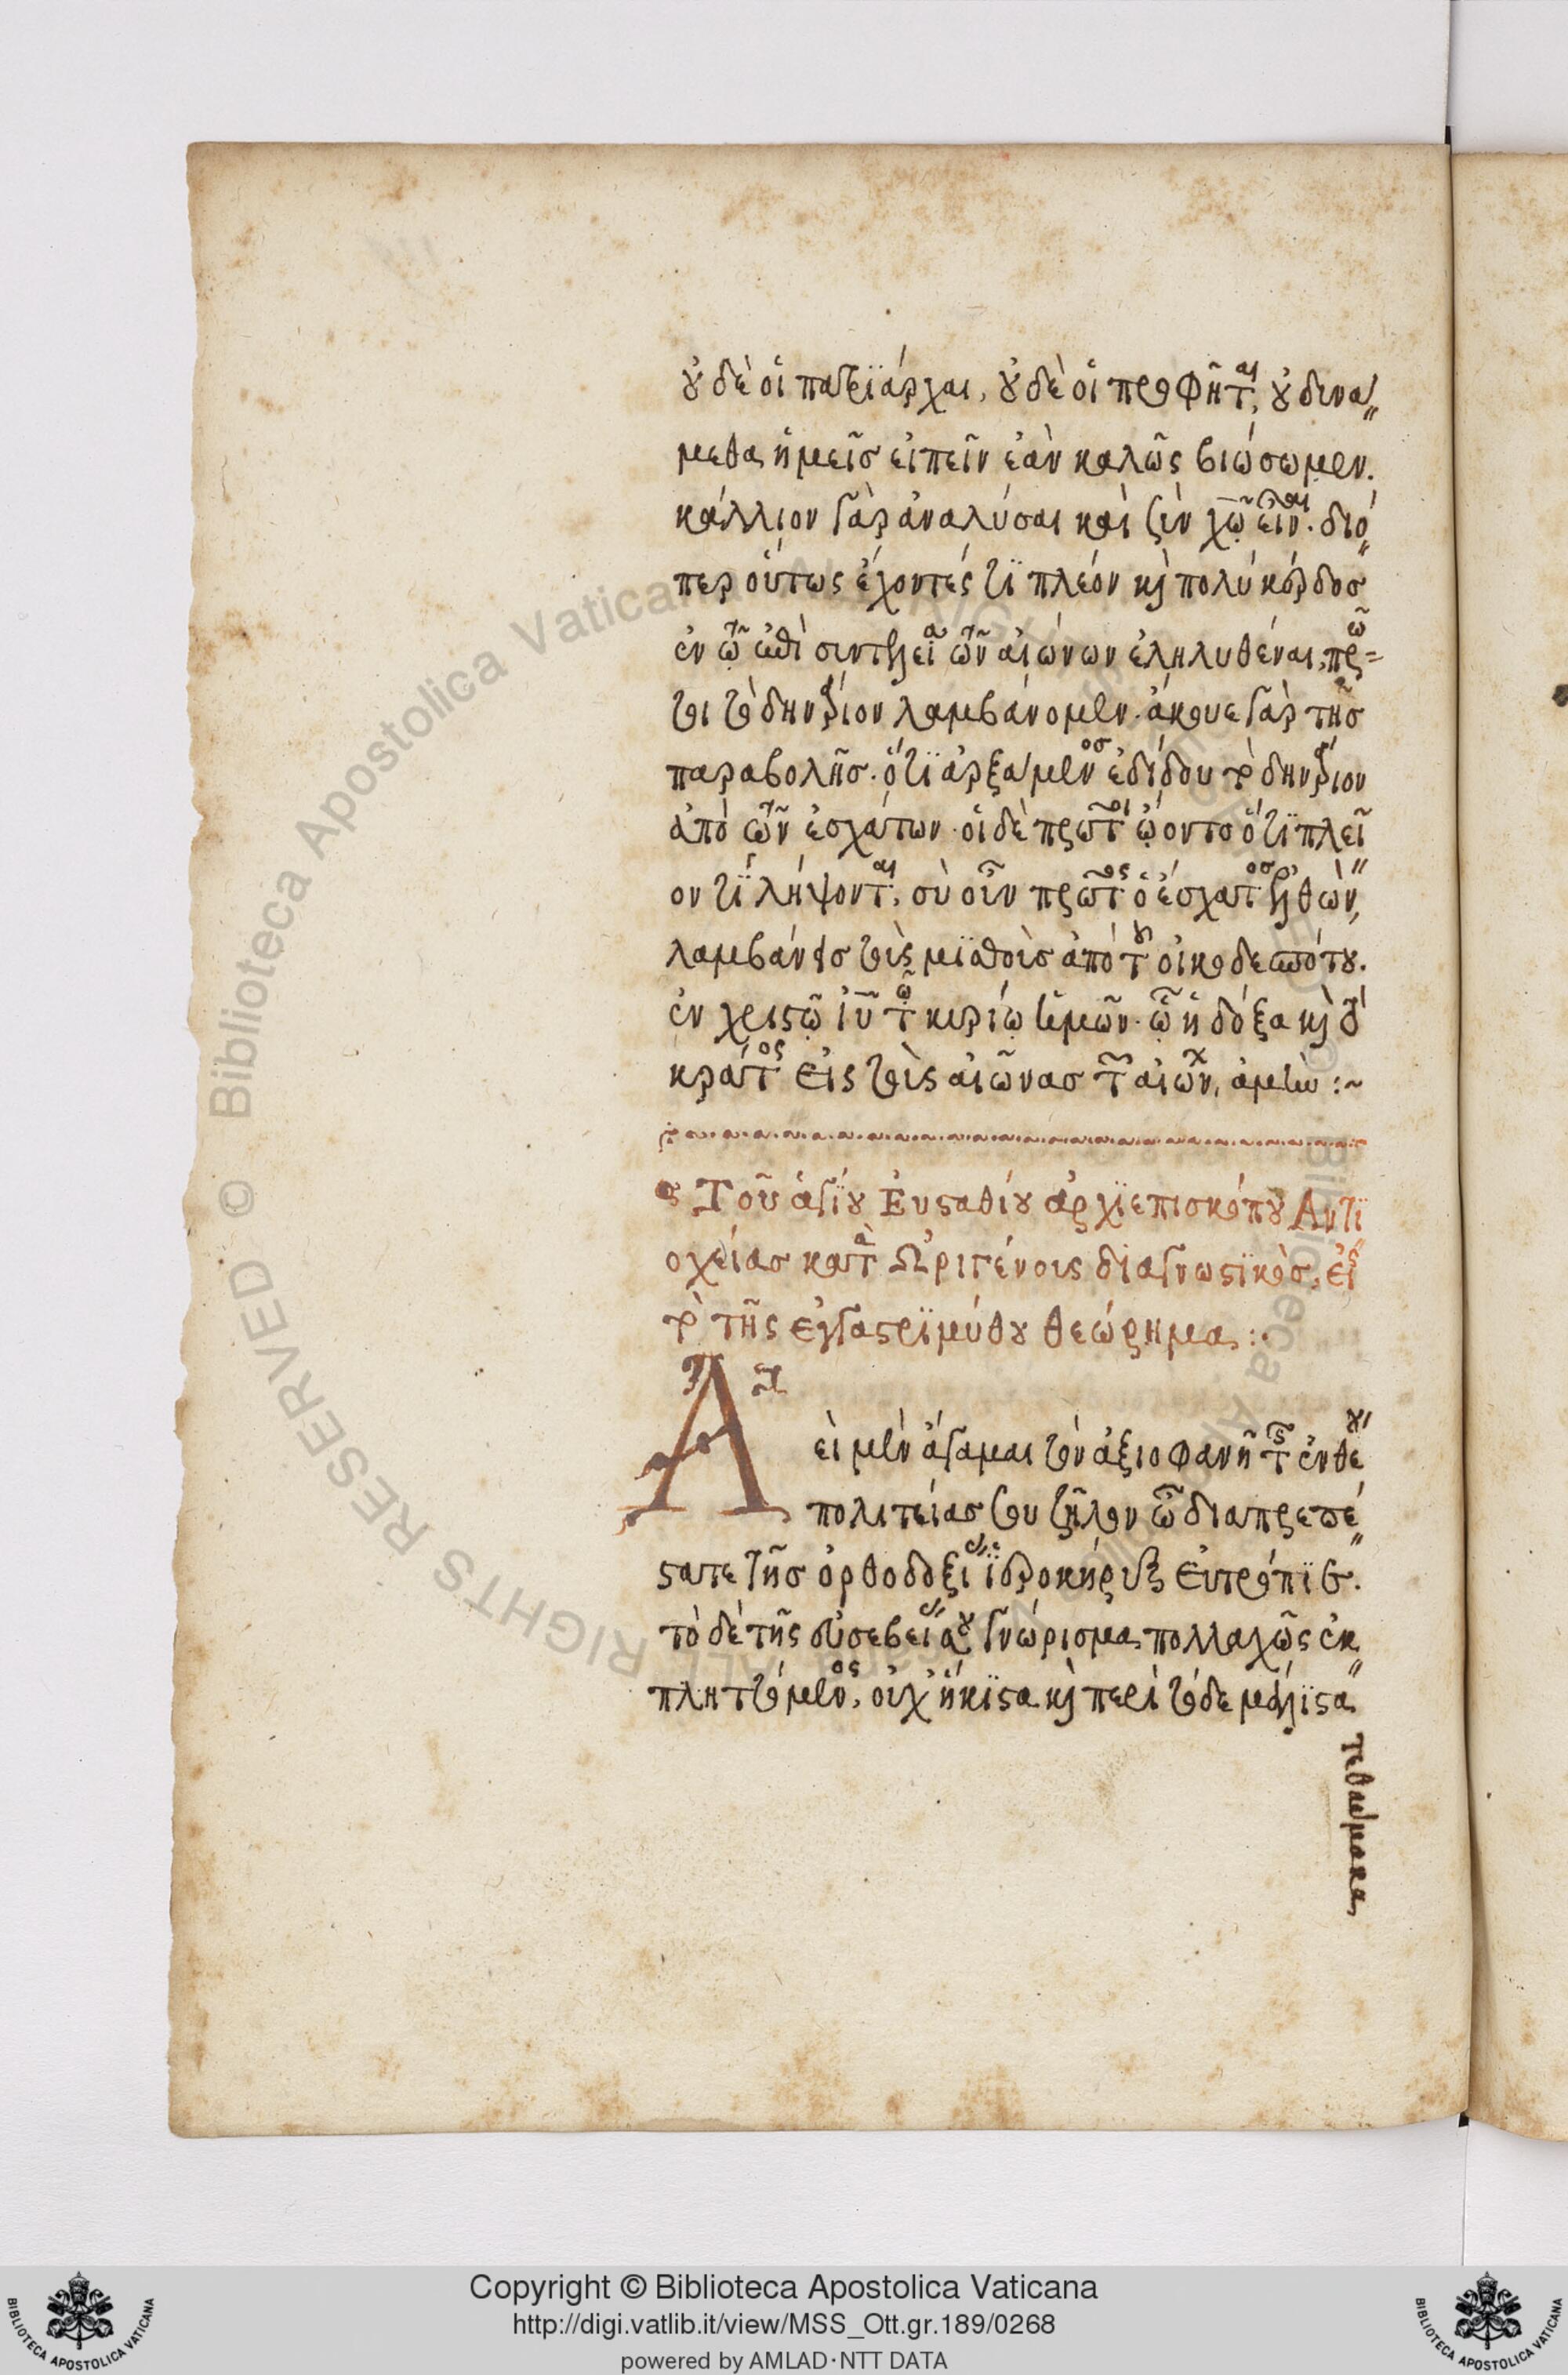 οὐδὲ οἱ πατριάρχαι, οὐδὲ οἱ προφῆται, ὃ δυνά
μεθα ἡμεῖς εἰπεῖν ἐὰν καλῶς βιώσωμεν.
κάλλιον γὰρ ἀναλύσαι καὶ σὺν χῷ εἶναι. διό
περ οὕτως ἔχοντές τι πλέον καὶ πολὺ κέρδος
ἐν τῷ ἐπὶ συντελείᾳ τῶν αἰώνων ἐληλυθέναι, πρῶ
τοι τὸ δηνάριον λαμβάνομεν. ἄκουε γὰρ τῆς
παραβολῆς. ὅτι ἀρξάμενος ἐδίδου τὸ δηνάριον
ἀπὸ τῶν ἐσχάτων. οἱ δὲ πρῶτοι ᾤοντο ὅτι πλεῖ
όν τι λήψονται, σὺ οὖν πρῶτος ὁ ἔσχατος ἐλθὼν,
λαμβάνεις τοὺς μισθοὺς ἀπὸ τοῦ οἰκοδεσπότου.
ἐν χριστῷ ἰυ τῷ κυρίῳ ἡμῶν. ᾧ ἡ δόξα καὶ τὸ
κράτος εἰς τοὺς αἰῶνας τῶν αἰώνων, ἀμήν :~
Τοῦ ἁγίου Εὐσταθίου ἀρχιεπισκόπου Αντι
οχείας κατὰ Ὠριγένους διαγνωστικὸς, εἰς
τὸ τῆς ἐγγαστριμύθου θεώρημα :·
Α
εὶ μὲν ἄγαμαι τὸν ἀξιοφανῆ τῆς ἐνθέου
πολιτείας σου ζῆλον ὦ διαπρεπέ
στατε τῆς ὀρθοδοξίας ἱεροκήρυξ Εὐτρόπιε.
τὸ δὲ τῆς εὐσεβείας σου γνώρισμα πολλαχῶς ἐκ
πληττόμενος, οὐχ ἥκιστα καὶ περὶ τόδε μάλιστα
τεθαύμακα
Copyright © Biblioteca Apostolica Vaticana
http://digi.vatlib.it/view/MSS_Ott.gr.189/0268
powered by AMLAD·NTT DATA